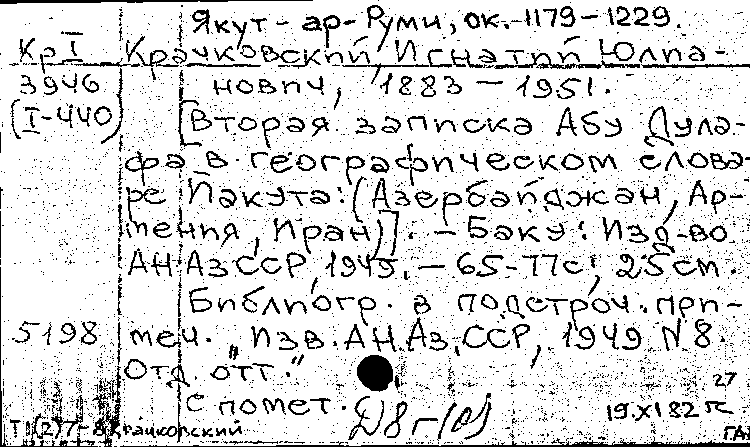 Якут-ар-Руми, ок. 1179-1229.
Кр I Крачковский, Игнатий Юлиа-
3946 нович, 1883-1951.
(I-440) [Вторая записка Абу Дула-
фа в географическом слова-
ре Йакута: (Азербайджан, Ар-
мения, Иран)]. - Баку: Изд-во
АН АзССР, 1949. - 65-77с; 25см.
Библиогр. в подстроч. при-
5198 меч. "Изв. АН Аз.ССР, 1949 N 8.
Отд. отт."
С помет.
27
19.XI 82 г.
Крачковский